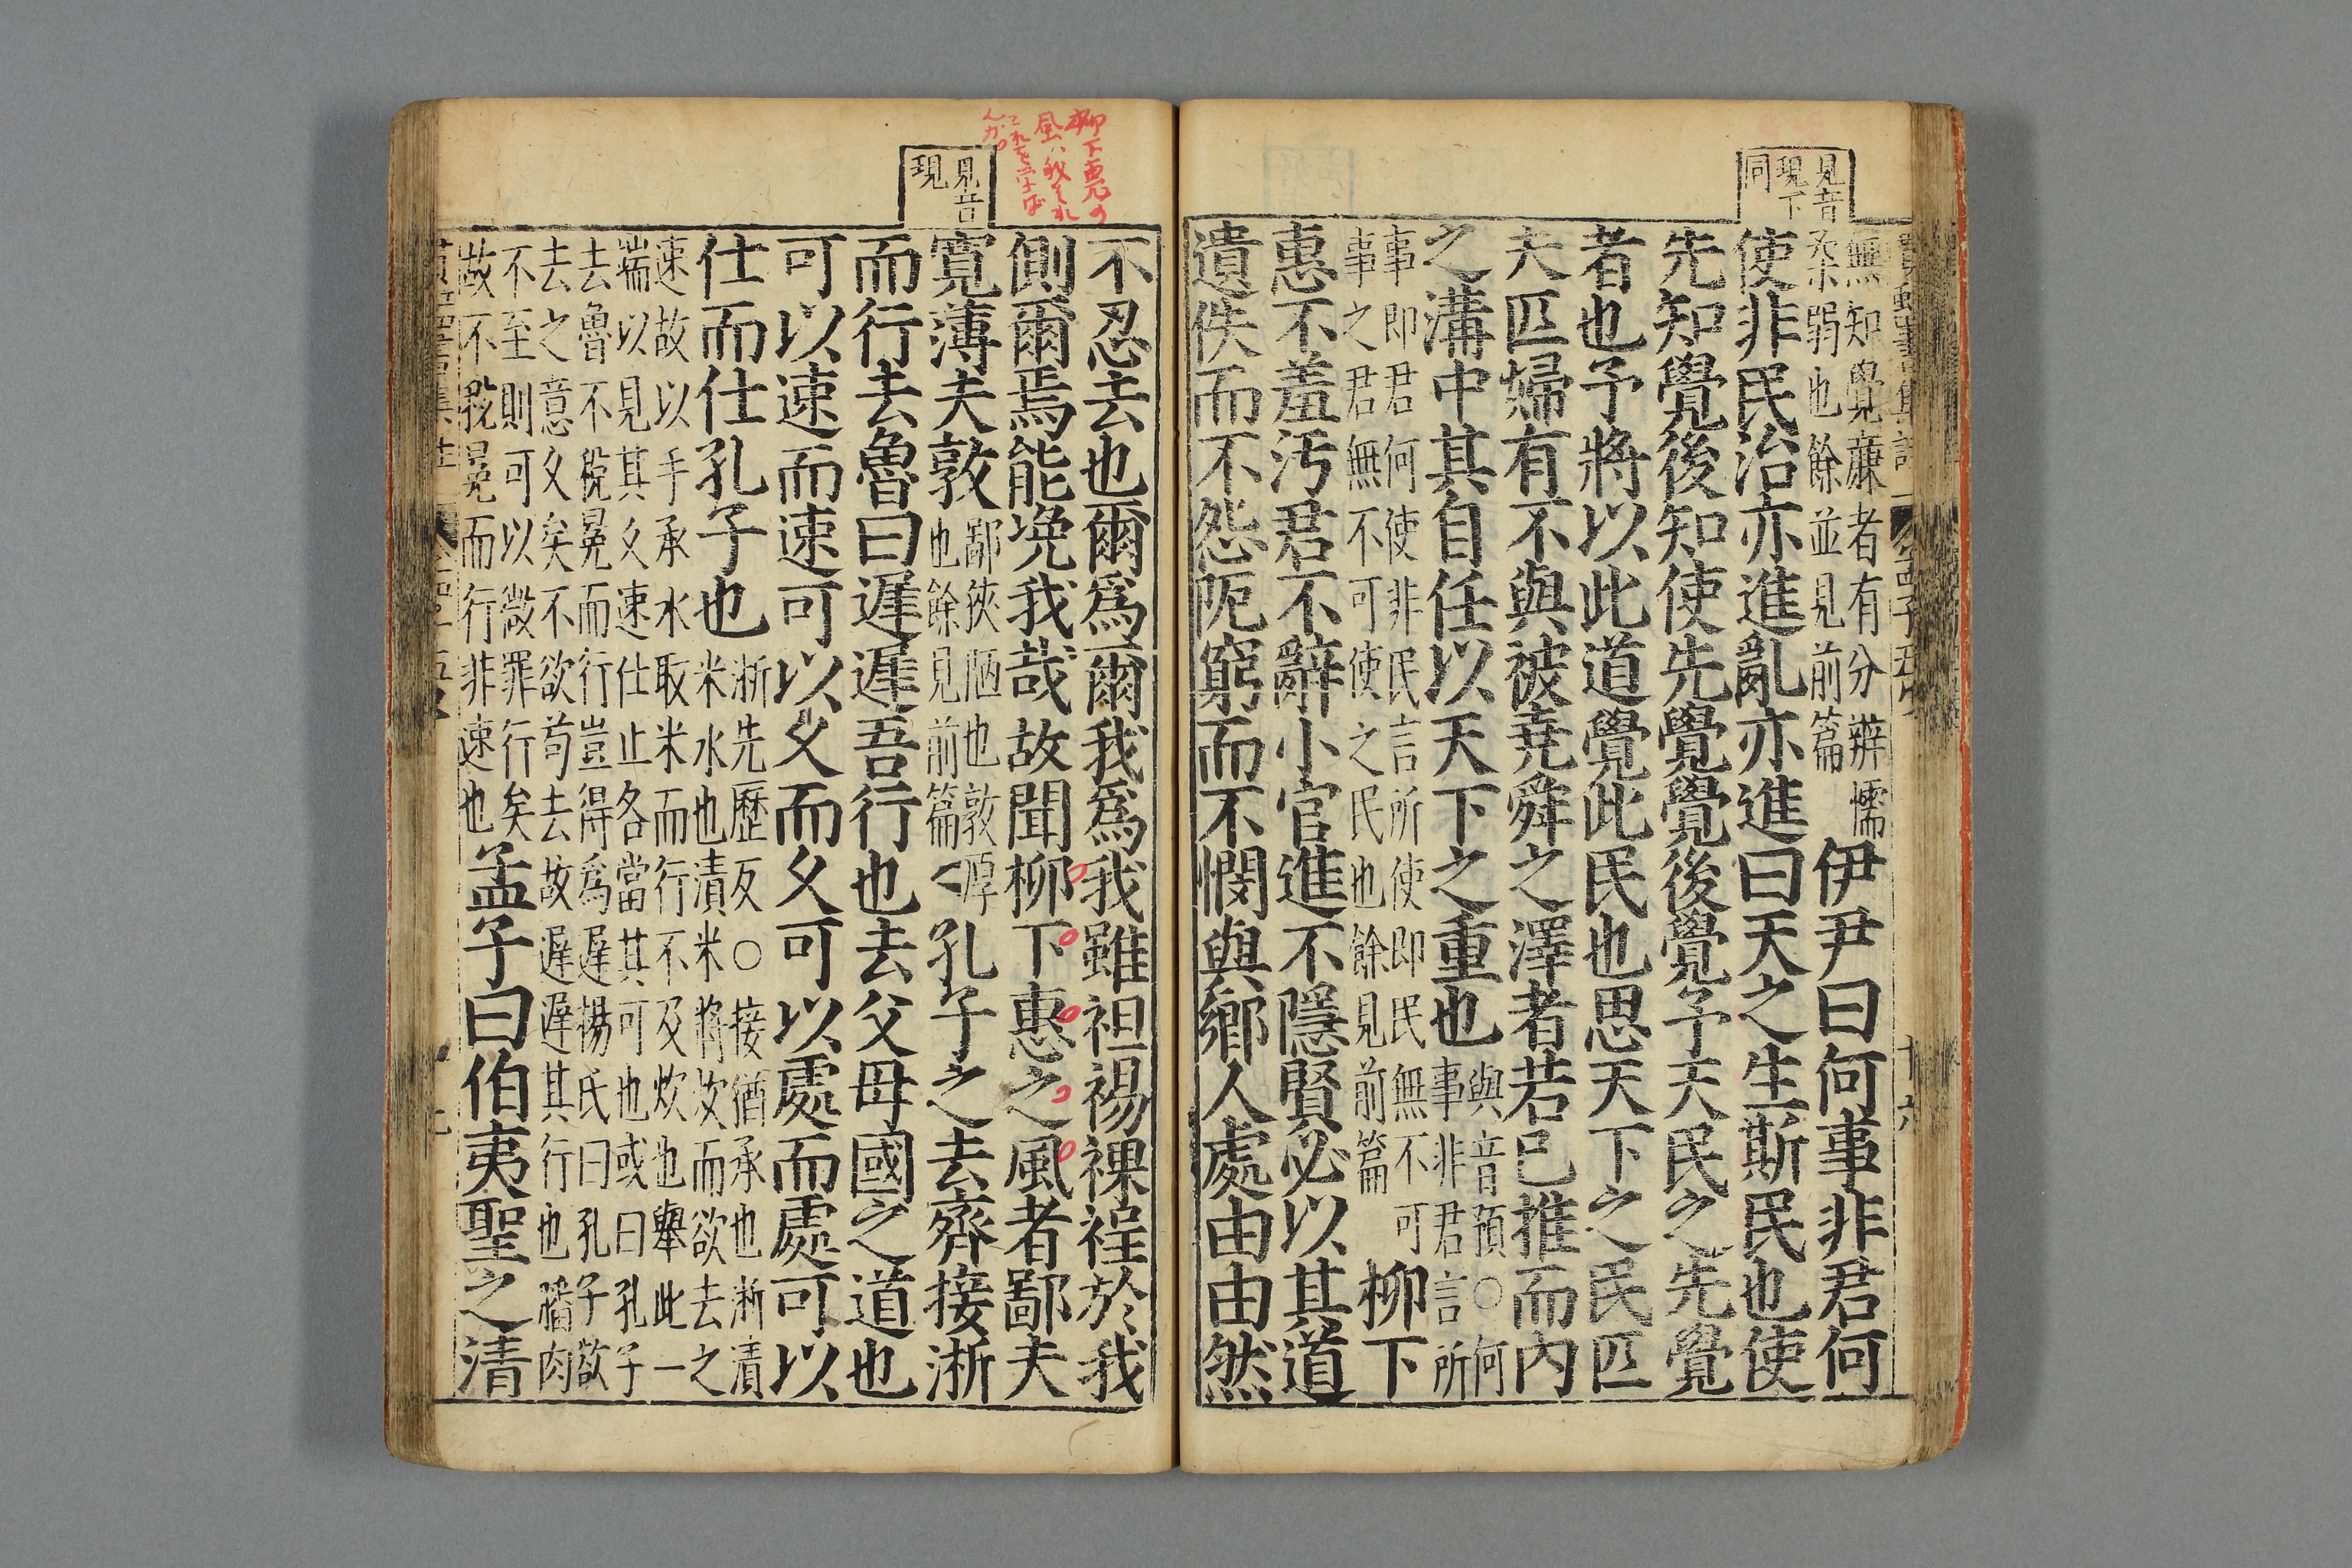 見音
現下
同
無知覺廉者有分辨懦
柔弱也餘並見前篇
伊尹曰何事非君何
使非民治亦進亂亦進曰天之生斯民也使
先知覺後知使先覺覺後覺予天民之先覺
者也予將以此道覺此民也思天下之民匹
夫匹婦有不與被堯舜之澤者若已推而內
之溝中其自任以天下之重也
與音預○何
事非君言所
事即君何使非民言所使即民無不可
事之君無不可使之民也餘見前篇
柳下
惠不羞汚君不辭小官進不隱賢必以其道
遺佚而不怨阨窮而不憫與鄉人處由由然
十六
柳下惠の
風ハ我それ
これを学ば
んか
見音
現
不忍去也爾爲爾我爲我雖袒裼裸裎於我
側爾焉能浼我哉故聞柳下惠之風者鄙夫
寬薄夫敦
鄙狹陋也敦厚
也餘見前篇
孔子之去齊接淅
而行去魯曰遲遲吾行也去父母國之道也
可以速而速可以久而久可以處而處可以
仕而仕孔子也
淅先歷反○接猶承也淅漬
米水也漬米將炊而欲去之
速故以手承水取米而行不及炊也舉此一
端以見其久速仕止各當其可也或曰孔子
去魯不稅冕而行豈得爲遲楊氏曰孔子欲
去之意久矣不欲苟去故遲遲其行也膰肉
不至則可以微罪行矣
故不稅冕而行非速也
孟子曰伯夷聖之清